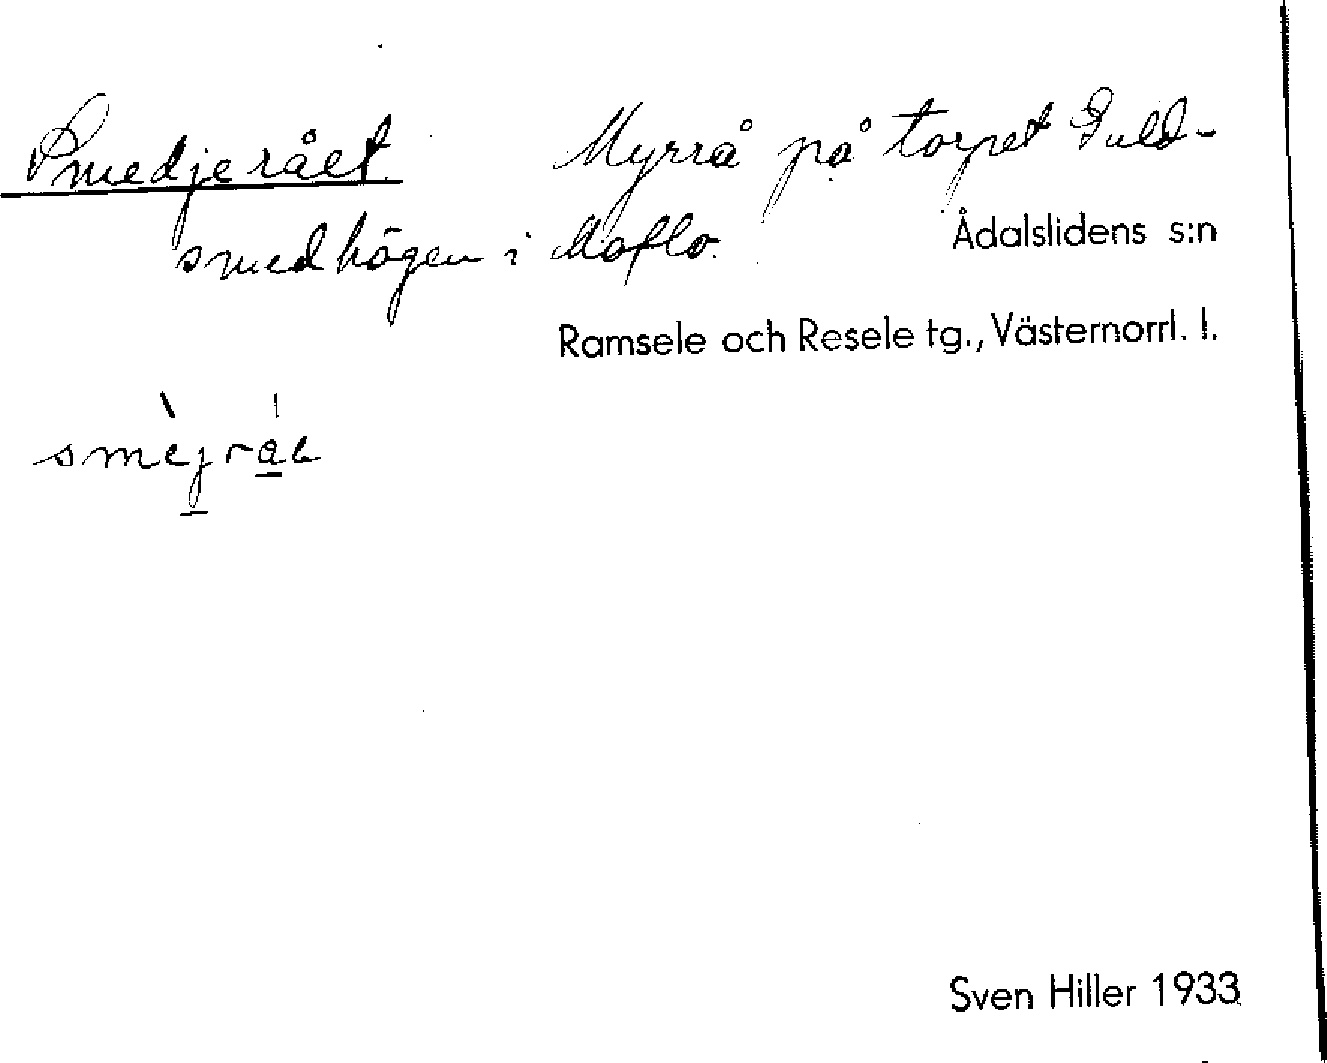 Smedjerået. Myrrå på torpet Guld-
smedhögen i Moflo.
Ådalslidens s:n
Ramsele och Resele tg., Västernorrl. l.
Sven Hiller 1933